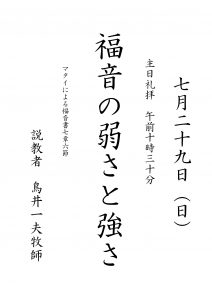 七月二十九日（日）
主日礼拝　午前十時三十分
福音の弱さと強さ
マタイによる福音書七章六節
説教者　鳥井一夫牧師